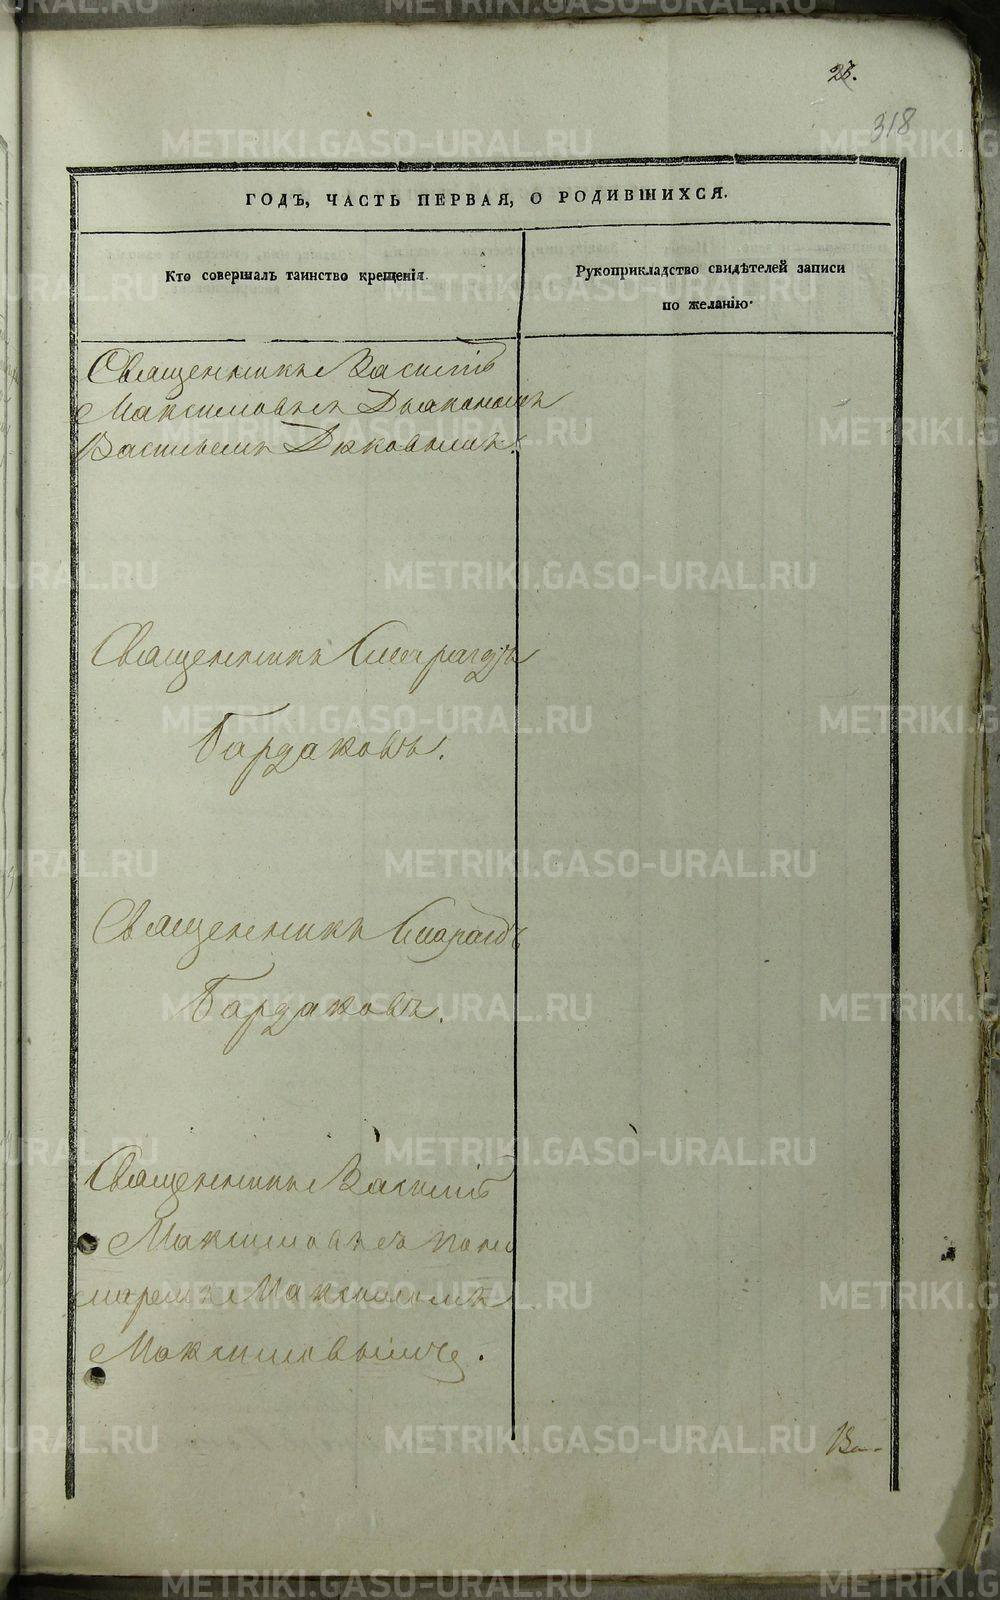 23.
318
ГОДЪ, ЧАСТЬ ПЕРВАЯ, О РОДИВШИХСЯ.
Кто совершалъ таинство крещенія.
Рукоприкладство свидѣтелей записи
по желанію.
Священникъ Василій
Максимовъ съ Дьякономъ
Васильемъ
Священникъ Смарагдъ
Бардаковъ.
Священникъ Смарагдъ
Бардаковъ.
Священникъ Василій
Максимовъ съ поно
маремъ Максимомъ
METRIKI.GASO-URAL.RU